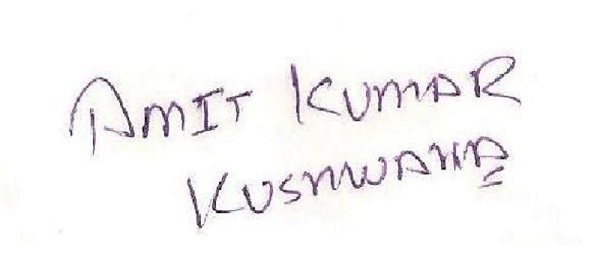 AMIT KUMAR
KUSHWAHA